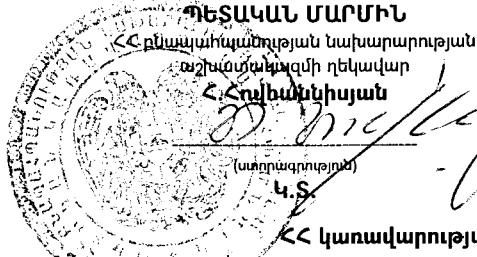 ՊԵՏԱԿԱՆ ՄԱՐՄԻՆ
ՀՀ բնապահպանության նախարարության
աշխատակազմի ղեկավար
Հ. Հովհաննիսյան
(ստորագրություն)
Կ.Տ.
ՀՀ կառավարությա